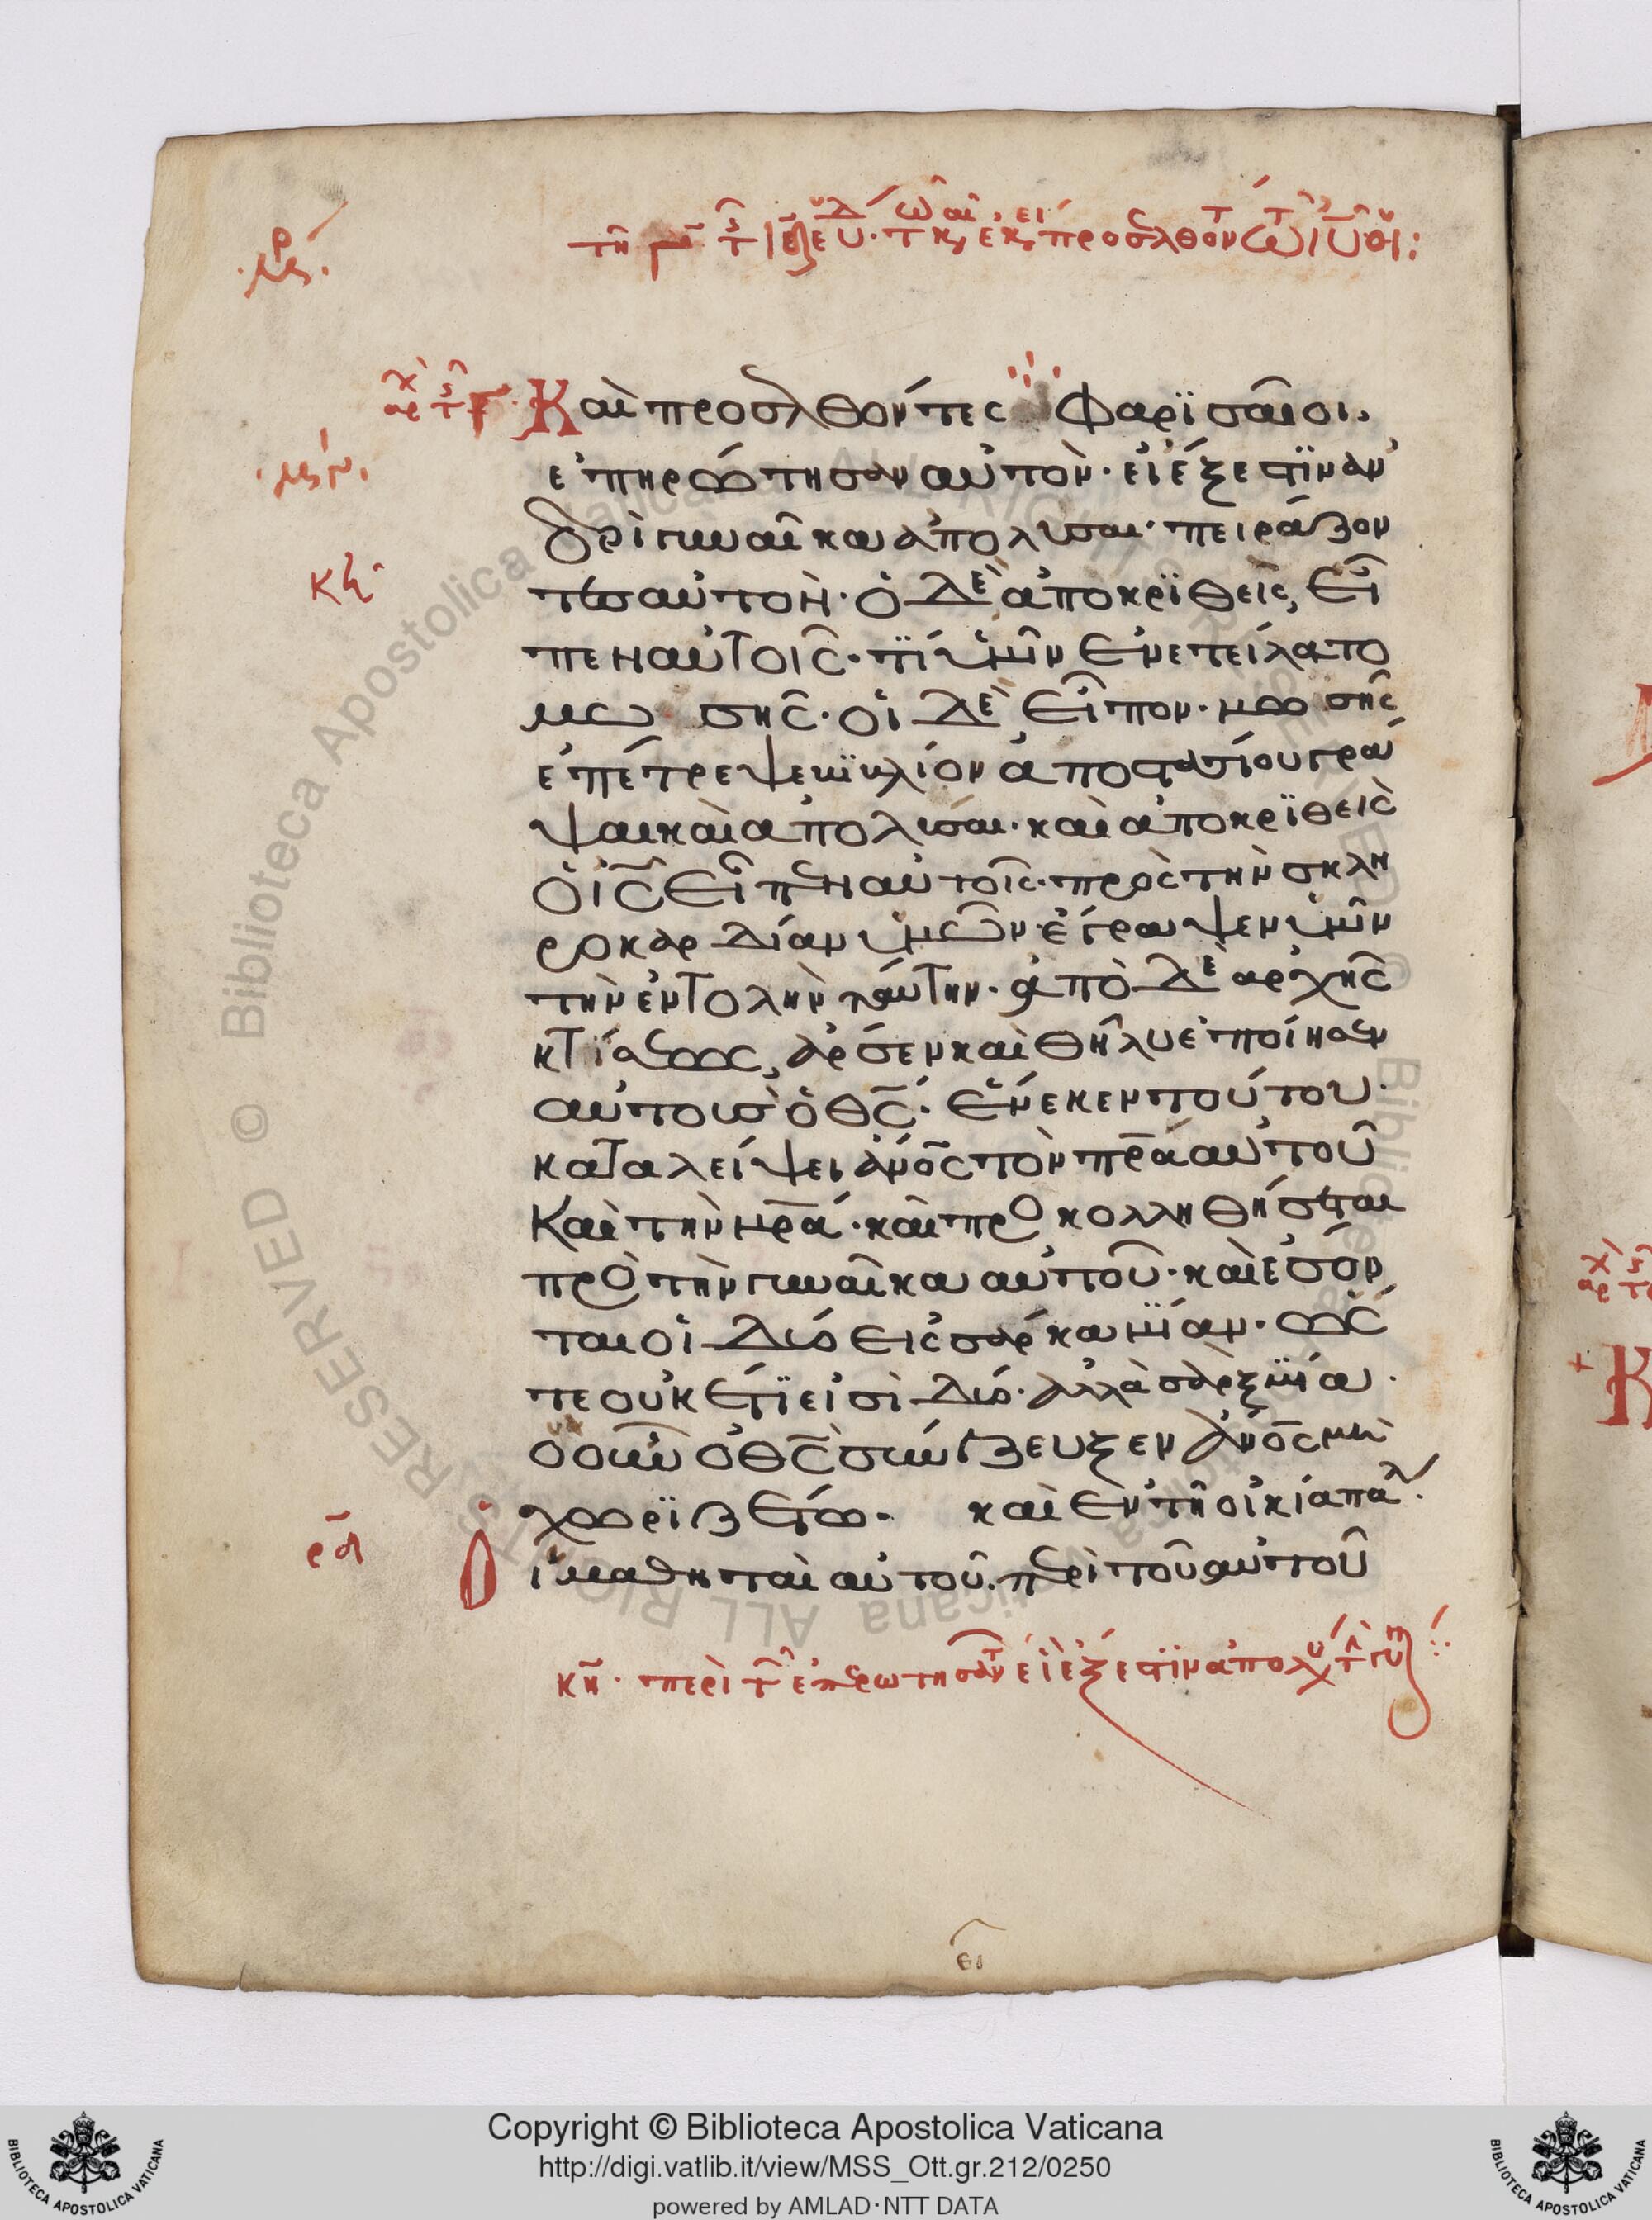 Καὶ προσελθόντες Φαρϊσαῖοι,
ἐπηρώτησαν αὐτὸν· εἰ ἔξεστϊν ἀν
δρὶ γυναῖκα ἀπολῦσαι· πειράζον
τεσ αὐτὸν· ὁ δὲ ἀποκρϊθεὶς, εἶ
πεν αὐτοῖς· τϊ ὑμῖν ἐνετείλατο
μωσῆς· οἱ δὲ εἶπον· μωσῆς
ἐπέτρεψε βϊβλίον ἀποστασίου γρά
ψαι καὶ ἀπολῦσαι· καὶ ἀποκρϊθεὶς
ὁ ις̅ εἶπεν αὐτοῖς· πρὸς τὴν σκλη
ροκαρδίαν ὑμῶν ἔγραψεν ὑμῖν
τὴν ἐντολὴν ταύτην· ἀπὸ δὲ ἀρχῆς
κτίσεως, ἄρσεν καὶ θῆλυ ἐποίησεν
αὐτοὺσ ὁ θς̅· ἕνεκεν τούτου
καταλείψει ἄνος̅ τὸν πρ̅α αὐτοῦ
καὶ τὴν μρ̅α· καὶ προκολληθήσεται
πρὸ τὴν γυναῖκα αὐτοῦ· καὶ ἔσον
ται οἱ δύο εἰς σάρκα μϊαν· ὥς
τε οὐκέτϊ εἰσὶ δύο· ἀλλὰ σὰρξ μϊα·
ὃ οὖν ὁ θς̅ συνέζευξεν ἄνος̅ μὴ
χωρϊζέτω· καὶ ἐν τῇ οἰκία πάλ
ἱ μαθηταὶ αὐτοῦ· περὶ τοῦ αὐτοῦ
κη̅· περὶ τ ἐπερωτησάντ εἰ ἔξεστϊν ἀπολυ
Copyright © Biblioteca Apostolica Vaticana
http://digi.vatlib.it/view/MSS_Ott.gr.212/0250
powered by AMLAD·NTT DATA